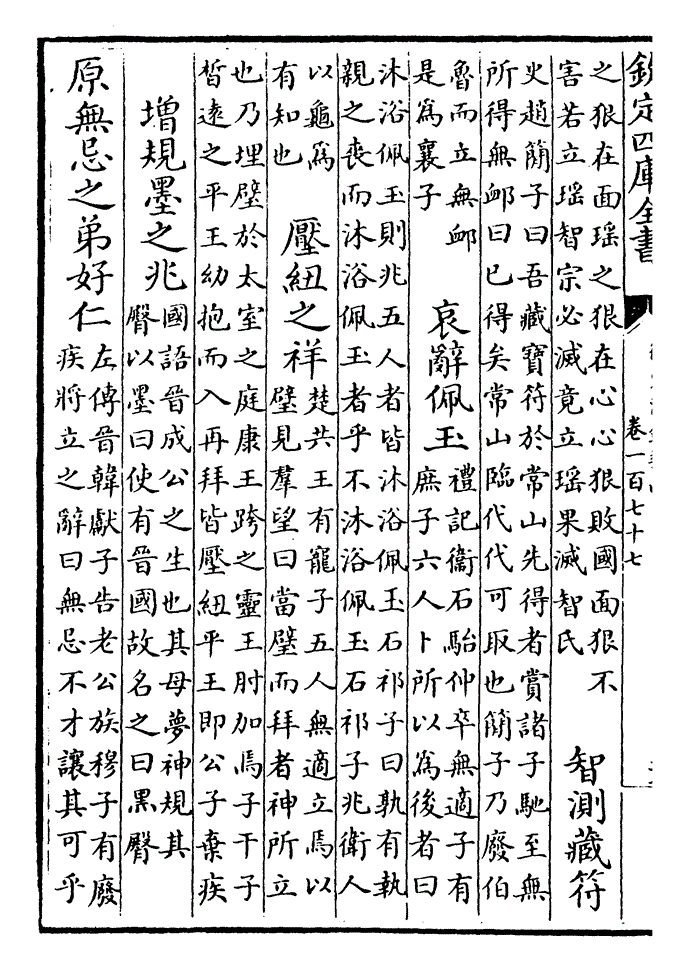 欽定四庫全書
卷一百七十七
之狠在面瑶之狠在心心狠敗國面狠不
害若立瑶智宗必滅竟立瑶果滅智氏
智測藏符
史趙簡子曰吾藏寶符於常山先得者賞諸子馳至無
所得無卹曰已得矣常山臨代代可取也簡子乃廢伯
魯而立無卹
是為襄子
哀辭佩玉
禮記衞石駘仲卒無適子有
庶子六人卜所以為後者曰
沐浴佩玉則兆五人者皆沐浴佩玉石祁子曰孰有執
親之喪而沐浴佩玉者乎不沐浴佩玉石祁子兆衛人
以龜為
有知也
壓紐之祥
楚共王有寵子五人無適立焉以
璧見羣望曰當璧而拜者神所立
也乃埋璧於太室之庭康王跨之靈王肘加焉子干子
晳遠之平王幼抱而入再拜皆壓紐平王即公子棄疾
增規墨之兆
國語晉成公之生也其母夢神規其
臀以墨曰使有晉國故名之曰黑臀
原無忌之弟好仁
左傳晉韓獻子告老公族穆子有廢
疾將立之辭曰無忌不才讓其可乎